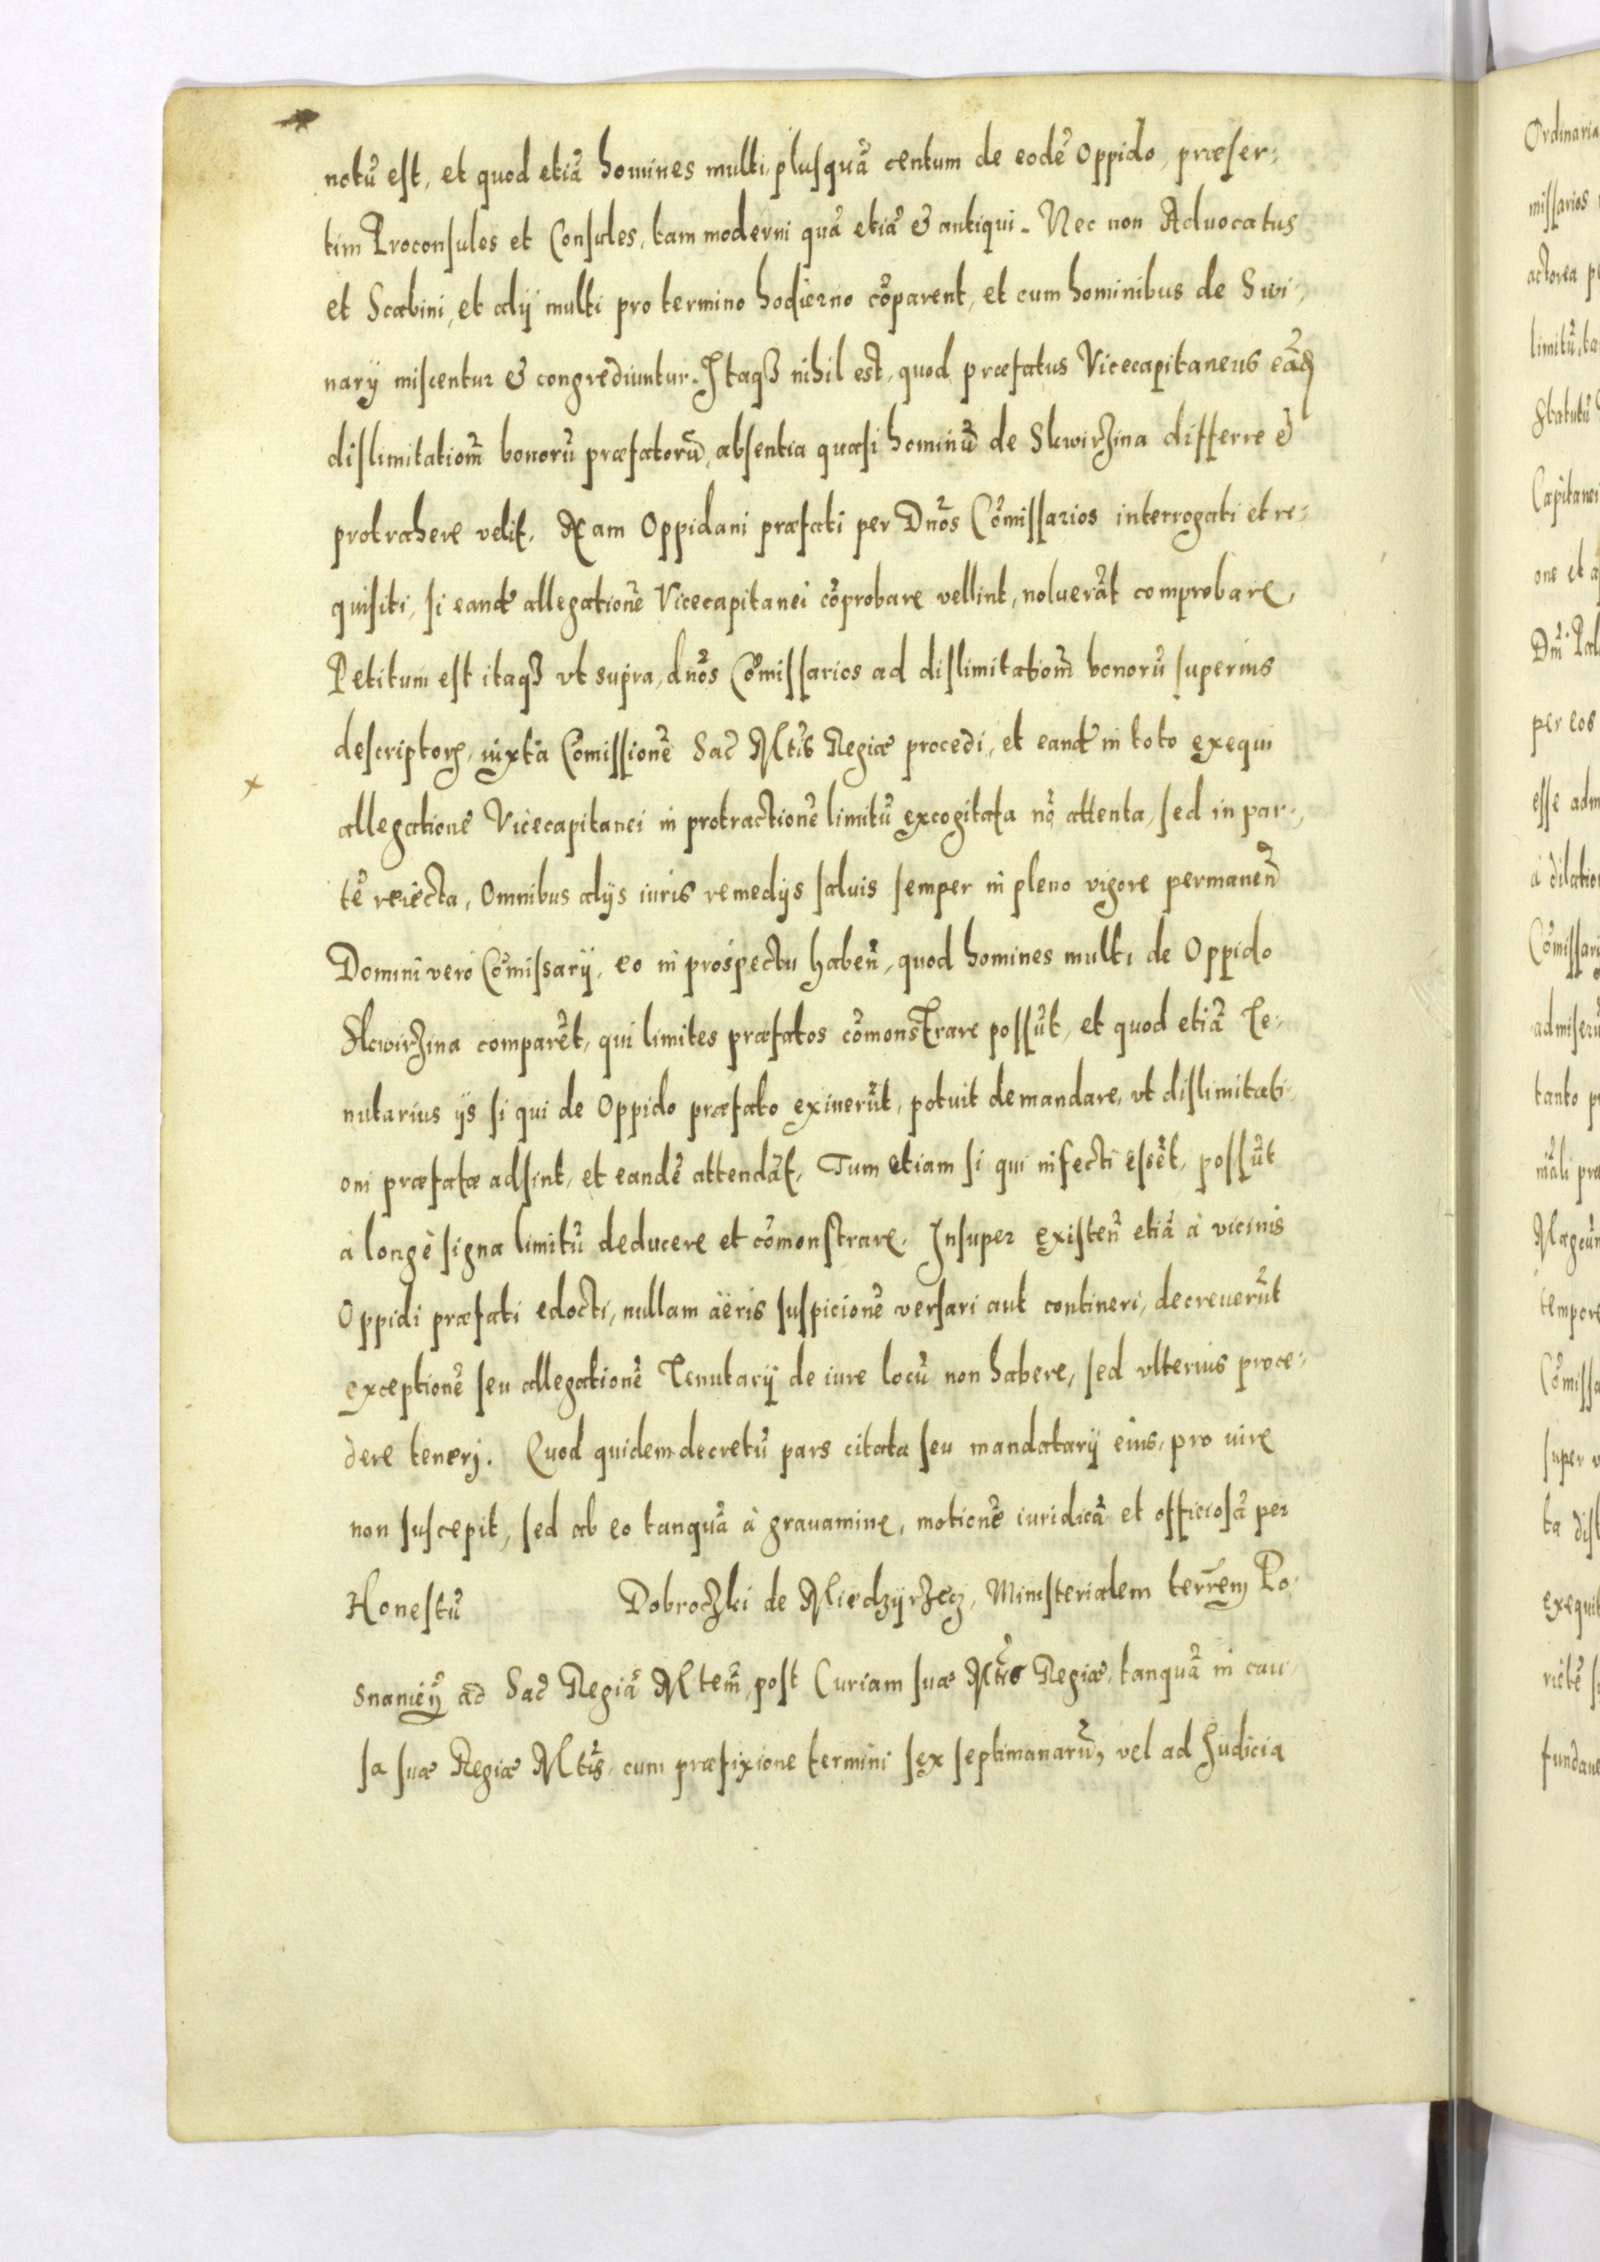 notũ est, et quod etiã homines multi, plusquã centum de eodẽ Oppido, præser-
tim Proconsules et Consules, tam moderni quã etiã & antiqui. Nec non Aduocatus
et Scabini, et alij multi pro termino hodierno cõparent, et cum hominibus de Swi-
narÿ miscentur & congrediuntur. Itaqꝫ nihil est, quod præfatus Vicecapitaneus eãd
dislimitationm̃ bonorũ præfatorũ, absentia quasi hominũ de Skwirzina differre &
protrahere velit. Nam Oppidani præfati per Dnõs Cõmissarios interrogati et re-
quisiti, si eandẽ allegationẽ Vicecapitanei cõprobare vellint, noluerũt comprobare,
Petitum est itaqꝫ vt supra, dnõs Cõmissarios ad dislimitationm̃ bonorũ superius
descriptorꝝ, iuxta Cõmissionẽ Sac̃ Mtĩs Regiæ procedi, et eandẽ in toto exequi
allegationẽ Vicecapitanei in protractionẽ limitũ excogitata nõ attenta, sed in par-
tẽ reiecta, Omnibus alijs iuris remedijs saluis semper in pleno vigore permaneñ
Domini vero Cõmissarij, eo in prospectu habeñ, quod homines multi de Oppido
Skwirzina comparẽt, qui limites præfatos cõmonstrare possũt, et quod etiã Te-
nutarius ijs si qui de Oppido præfato exiuerũt, potuit demandare, vt dislimitati-
oni præfatæ adsint, et eandẽ attendãt, Tum etiam si qui infecti essẽt, possũt
à longè signa limitũ deducere et cõmonstrare. Insuper existeñ etiã à vicinis
Oppidi præfati edocti, nullam aëris suspicionẽ versari aut contineri, decreuerũt
exceptionẽ seu allegationẽ Tenutarij de iure locũ non habere, sed vlterius proce-
dere teneri. Quod quidem decretũ pars citata seu mandatarij eius, pro iure
non suscepit, sed ab eo tanquã à grauamine, motionẽ iuridicã et officiosã per
Honestũ Dobroczki de Miedzÿrzecz, Ministerialem terrẽm Po-
snanieñ ad Sac̃ Regiã Mtem̃, post Curiam suæ Mtĩs Regiæ, tanquã in cau-
sa suæ Regiæ Mtĩs, cum præfixione termini sex septimanarũ, vel ad Iudicia
Ordinaria
missarios
actorea
Statutũ
Capitanei
one et
per eos
esse adm
Cõmissari
admiserũ
tanto
tempore
Cõmissa
super
exequi